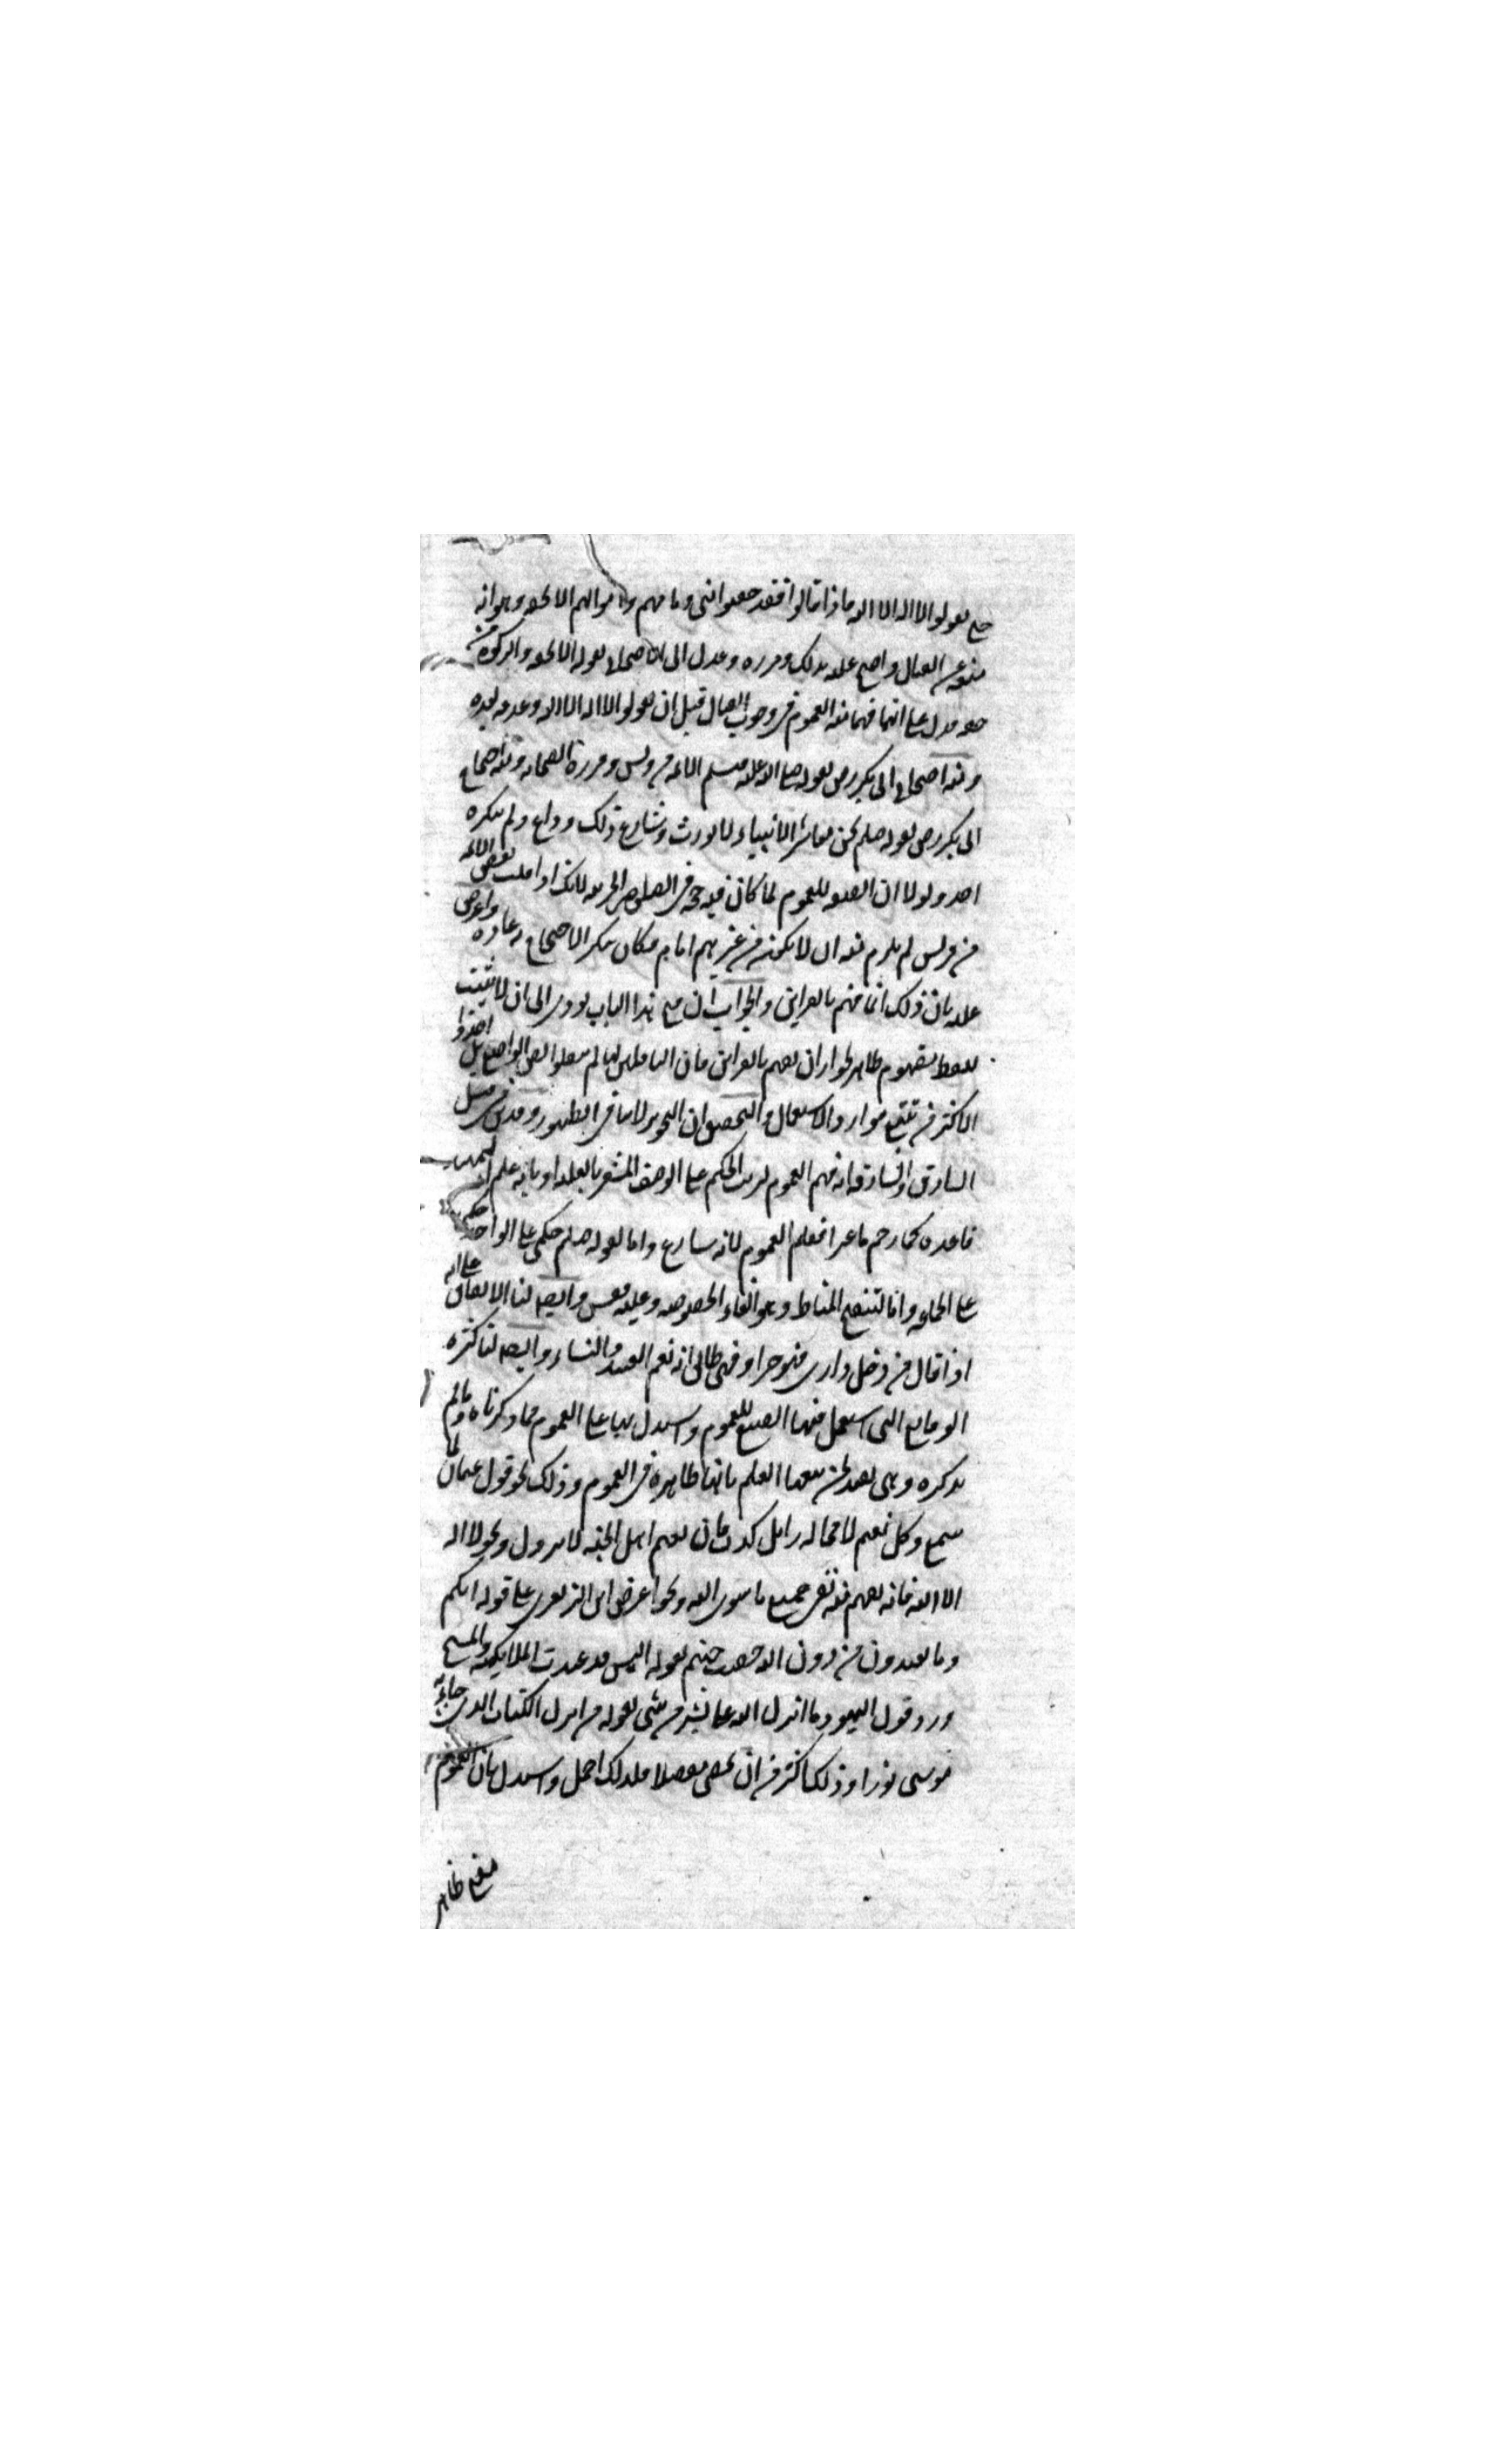 حتى يقولوا لا اله الا الله فاذا قالوا فقد حقنوا منى دماءهم واموالهم الا بحقه وهو انه
منعه عن القتال واحتج عليه بذلك وقرره وعدل الى الاحتجاج بقوله الا بحقه والزكوة من
حقه فدل على انهما فهما منه العموم فى وجوب القتال قبل ان يقولوا لا اله الا الله وعدمه بعده
ومنه احتجاج ابى بكر رضى بقوله صلى الله عليه وسلم الائمة من قريش وقرره الصحابة ومنه احتجاج
ابى بكر رضى بقوله صلعم نحن معاشر الانبياء لا نورث وشاع ذلك وذاع ولم ينكره
احد ولولا ان الصيغة للعموم لما كان فيه حجة فى الصور الجزئية لانك اذا قلت بعض الائمة
من قريش لم يلزم منه ان لا يكون من غيرهم امام فكان ينكر الاحتجاج به عادة واعترض
عليه بان ذلك انما فهم بالقراين والجواب ان فتح هذا الباب يؤدى الى ان لا يثبت
للفظ مفهوم ظاهر لجواز ان يفهم بالقراين فان الناقلين لنا لم ينقلوا نص الواضع بل اخذوا
الاكثر من تتبع موارد الاستعمال والتحقيق ان التجويز لا ينافى الظهور وقد يق فى مثل
السارق والسارقة انه فهم العموم لترتب الحكم على الوصف المشعر بالعلية او بانه علم انه لتمهيد
قاعدة كما رجم ماعزا فعلم العموم لانه شارع واما لقوله صلعم حكمى على الواحد حكمى
على الجماعة واما لتنقيح المناط وهو الغاء الخصوصية وعليه فقس وايضا لنا الاتفاق على انه
اذا قال من دخل دارى فهو حر او فهى طالق انه يعم العبيد والنساء وايضا لنا كثرة
الوقايع التى استعمل فيها الصيغ للعموم واستدل بها على العموم مما ذكرناه وما لم
نذكره وهى بعد لمن يتتبعها العلم بانها ظاهرة فى العموم وذلك نحو قول عثمان لما
سمع وكل نعيم لا محالة زائل كذبت فان نعيم اهل الجنة لا يزول ونحو لا اله
الا الله فانه يفهم منه نفى جميع ما سوى الله ونحو اعترض ابن الزبعرى على قوله انكم
وما تعبدون من دون الله حصب جهنم بقوله اليس قد عبدت الملايكة والمسيح
ورد قول اليهود ما انزل الله على بشر من شى بقوله من انزل الكتاب الذى جاء به
موسى نورا وذلك اكثر من ان يحصى مفصلا فلذلك اجمل واستدل بان العموم
معنى ظاهر